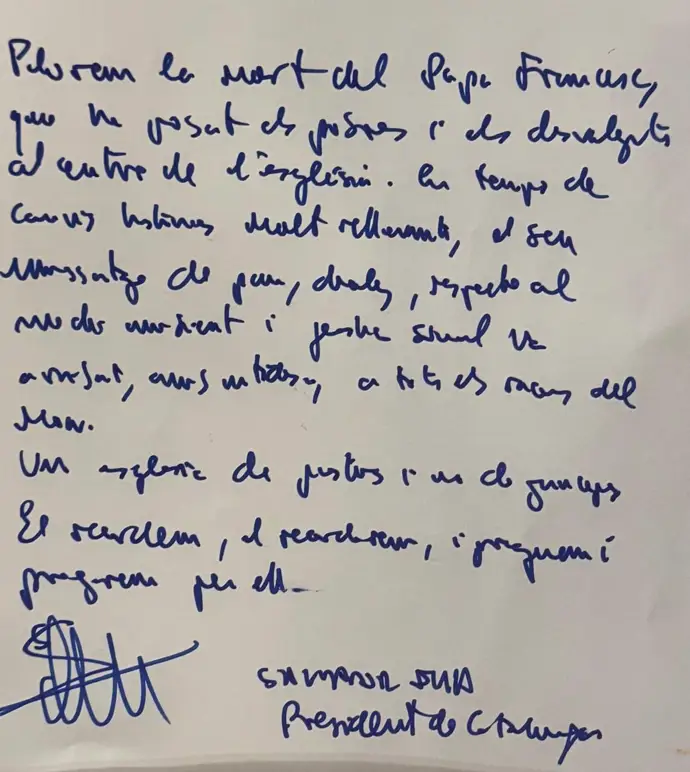 Plorem la mort del Papa Francesc,
que ha posat els pobres i els desvalguts
al centre de l'església. En temps de
canvis històrics molt rellevants, el seu
missatge de pau, diàleg, respecte al
medi ambient i justícia social va
arribat, amb, a tots els racons del
Món.
Un església de pastors i no de
El recordem, el recordarem, i preguem i
pregarem per ell.
SALVADOR ILLA
President de Catalunya